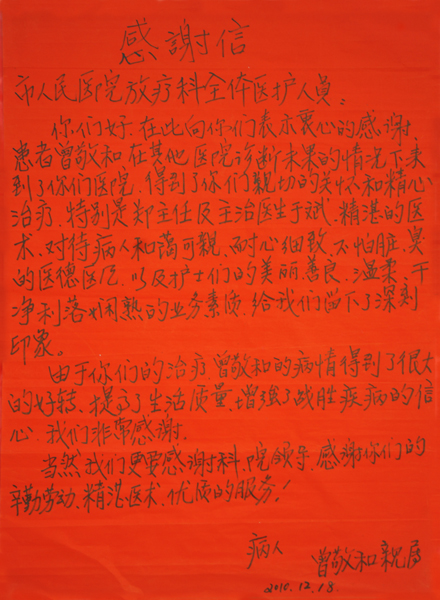 感謝信
市人民医院放疗科全体医护人员：
你们好。在此向你们表示衷心的感谢。
患者曾敬和在其他医院诊断未果的情况下来
到了你们医院，得到了你们親切的关怀和精心
治疗，特别是郑主任及主治医生于斌，精湛的医
术，对待病人和蔼可親，耐心细致，不怕脏臭
的医德医风，以及护士们的美丽善良、温柔、干
净利落、娴熟的业务素质，给我们留下了深刻
印象。
由于你们的治疗曾敬和的病情得到了很大
的好转，提高了生活质量，增強了战胜疾病的信
心，我们非常感谢。
当然我们更要感谢科、院领导，感谢你们的
辛勤劳动，精湛医术，优质的服务！
病人 曾敬和親属
2010.12.18.